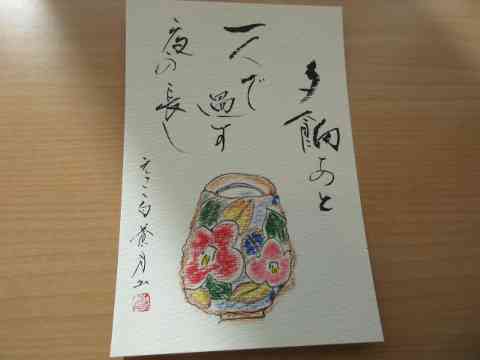 夕餉あと
一人で過す
夜の長し